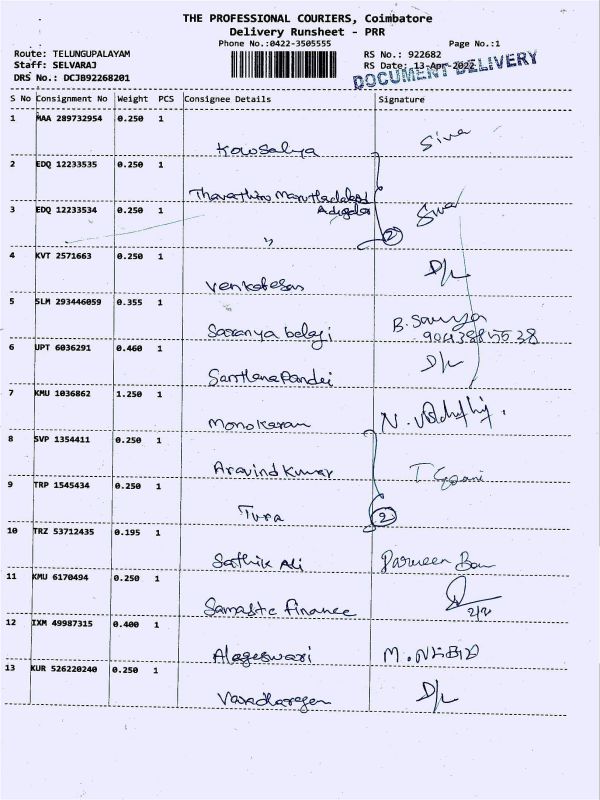 THE PROFESSIONAL COURIERS, Coimbatore
Delivery Runsheet - PRR
Phone No.:0422-3505555
Page No.:1
Route: TELUNGUPALAYAM
RS No.: 922682
Staff: SELVARAJ
RS Date: 13-Apr-2022
DRS No.: DCJB92268201
DOCUMENT DELIVERY
S No Consignment No Weight PCS Consignee Details Signature
1 MAA 289732954 0.250 1
Kowsalya Siva
2 EDQ 12233535 0.250 1
3 EDQ 12233534 0.250 1
Siva
" 2
4 KVT 2571663 0.250 1
Venkatesan D/L
5 SLM 293446059 0.355 1
Saranya balaji B. Saranya
6 UPT 6036291 0.460 1
D/L
7 KMU 1036862 1.250 1
Manokaran
8 SVP 1354411 0.250 1
Aravind Kumar
9 TRP 1545434 0.250 1
2
10 TRZ 53712435 0.195 1
Sathik Ali Parveen
11 KMU 6170494 0.250 1
Finance
12 IXM 49987315 0.400 1
Alageswari
13 KUR 526220240 0.250 1
Varadharajan D/L